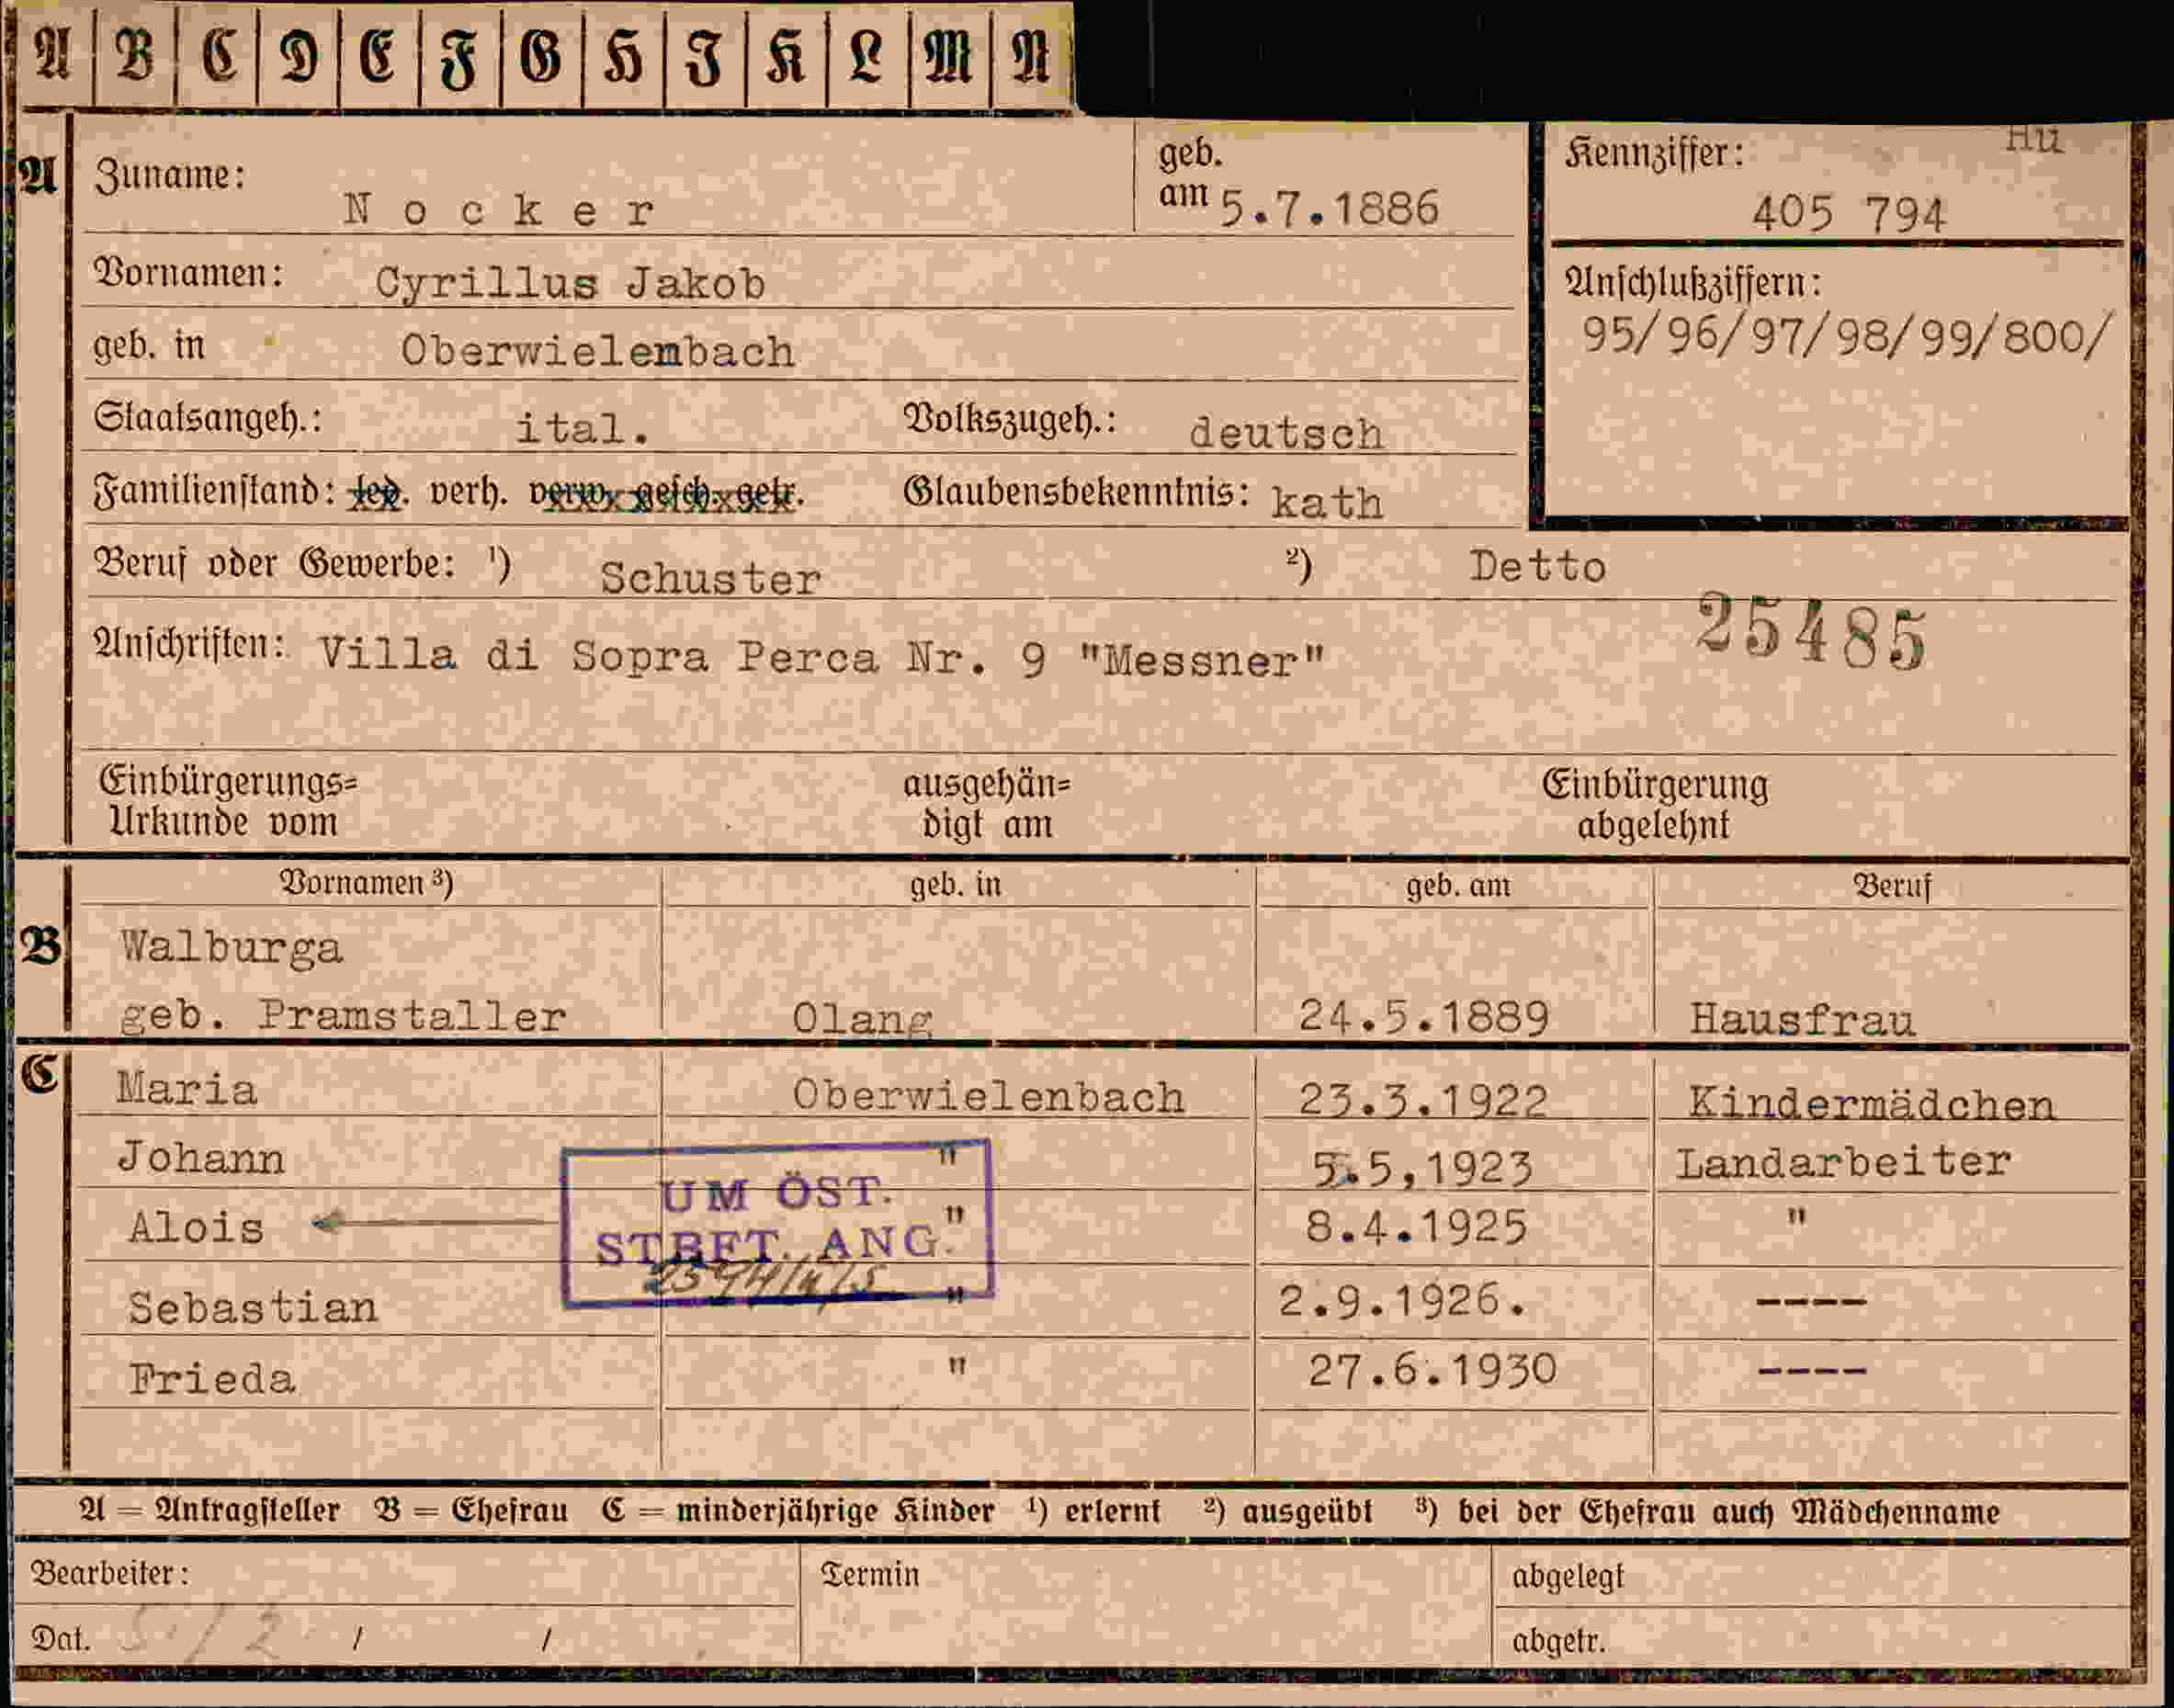 A B C D E F G H I K L M N
Hu
A Zuname: Nocker geb. am 5.7.1886
Kennziffer: 405 794
Vornamen: Cyrillus Jakob
Anschlußziffern:
95/96/97/98/99/800/
geb. in Oberwielenbach
Staatsangeh.: ital. Volkszugeh.: deutsch
Familienstand: led. verh. verw. gesch. getr. Glaubensbekenntnis: kath
Beruf oder Gewerbe: ¹) Schuster ²) Detto
25485
Anschriften: Villa di Sopra Perca Nr. 9 "Messner"
Einbürgerungs= ausgehän= Einbürgerung
Urkunde vom digt am abgelehnt
Vornamen ³) geb. in geb. am Beruf
B Walburga
geb. Pramstaller Olang 24.5.1889 Hausfrau
C Maria Oberwielenbach 23.3.1922 Kindermädchen
Johann " 5.5,1923 Landarbeiter
UM ÖST.
Alois " 8.4.1925 "
STBFT. ANG.
Sebastian " 2.9.1926. ----
Frieda " 27.6.1930 ----
A = Antragsteller B = Ehefrau C = minderjährige Kinder ¹) erlernt ²) ausgeübt ³) bei der Ehefrau auch Mädchenname
Bearbeiter: Termin abgelegt
Dat. 5 / 2 / / abgetr.